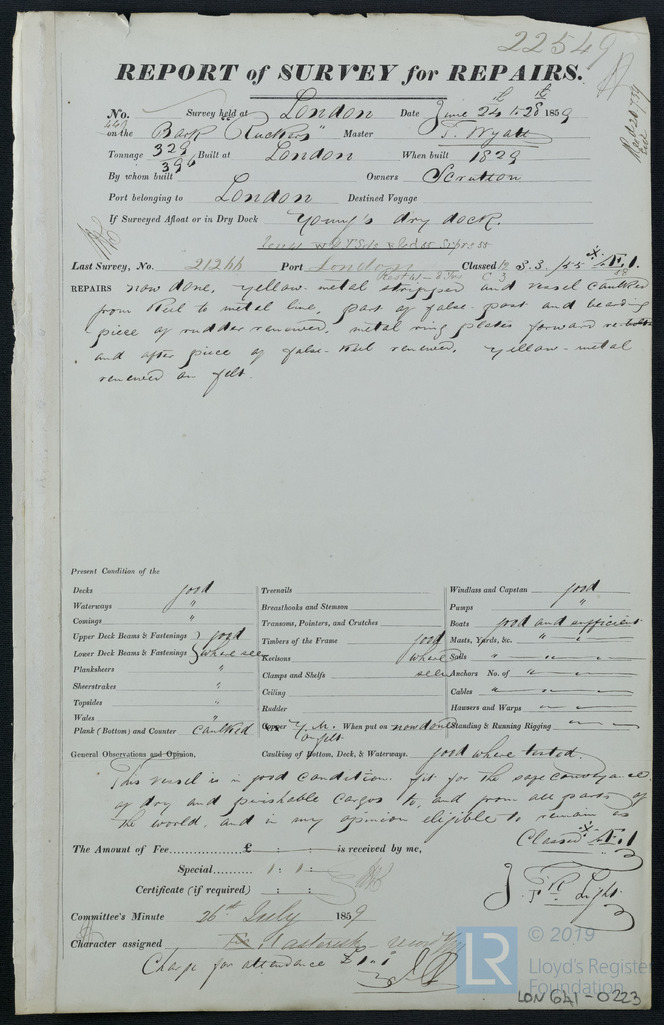 22549
REPORT of SURVEY for REPAIRS.
No. 449 Survey held at London Date June 24 to 28th 1859
on the Bark "Tuckers" Master T. Wyatt
Tonnage 329 396 Built at London When built 1829
By whom built Owners Scrutton
Port belonging to London Destined Voyage
If Surveyed Afloat or in Dry Dock Young's dry dock.
Last Survey, No. 21244 Port London Classed 3.3./55
REPAIRS now done, yellow metal stripped and vessel caulked
from Keel to metal line, part of false post and bearding
piece of rudder renewed, metal ring plates forward
and after piece of false keel renewed, yellow-metal
renewed on felt.
Present Condition of the
Decks good Treenails Windlass and Capstan good
Waterways " Breasthooks and Stemson Pumps "
Comings " Transoms, Pointers, and Crutches Boats good and sufficient
Upper Deck Beams & Fastenings } good Timbers of the Frame good Masts, Yards, &c. "
Lower Deck Beams & Fastenings } where seen Keelsons where Sails "
Planksheers " Clamps and Shelfs seen Anchors No. of "
Sheerstrakes " Ceiling Cables "
Topsides " Rudder Hawsers and Warps
Wales " Copper Y. M. on felt When put on now done Standing & Running Rigging
Plank (Bottom) and Counter caulked
General Observations and Opinion, Caulking of Bottom, Deck, & Waterways. good where tested.
This vessel is in good condition fit for the safe conveyance
of dry and perishable Cargos to, and from all parts of
the world, and in my opinion eligible to remain as
Classed Æ.1
The Amount of Fee £ : : is received by me,
Special : :
Certificate (if required) : :
T. R. Light
Committee's Minute 26th July 1859
Character assigned
Charge for attendance £1.1
© 2019
LR
Lloyd's Register
Foundation
LON 641-0223